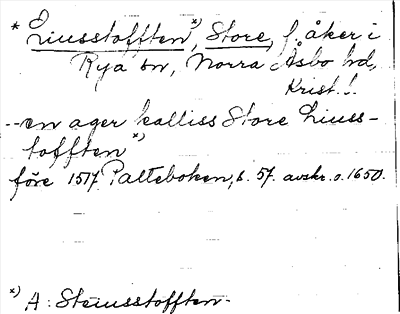 * Liusstofften*), Store, f. åker i
Rya sn, Norra Åsbo hd,
Krist. l.
-- en ager kalliss Store Liuss-
tofften*)
före 1517 Palteboken, s. 57. avskr. o. 1650.
*) A: Steinsstofften.